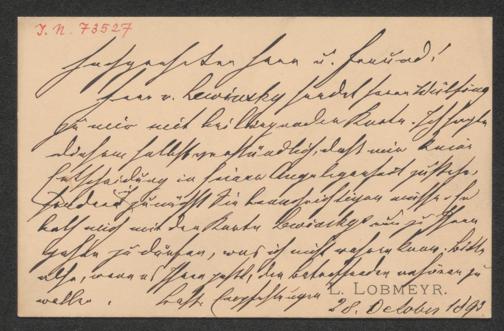 I. N. 73527
Hochgeehrter Herr u. Freund!
Herr v. Lewinsky sendet Herrn
zu mir mit beiliegender Karte. Ich sagte
diesem selbstverständlich, daß mir keine
Entscheidung in seiner Angelegenheit zustehe,
sondern zunächst Sie
halb mich mit der Karte Lewinskys nur zu Ihnen
zu dürfen, was ich nicht wehren kann. Bitte
also, wenn es Ihnen paßt, den betreffenden anhören zu
wollen. Beste Empfehlungen
L. LOBMEYR.
28. October 1893